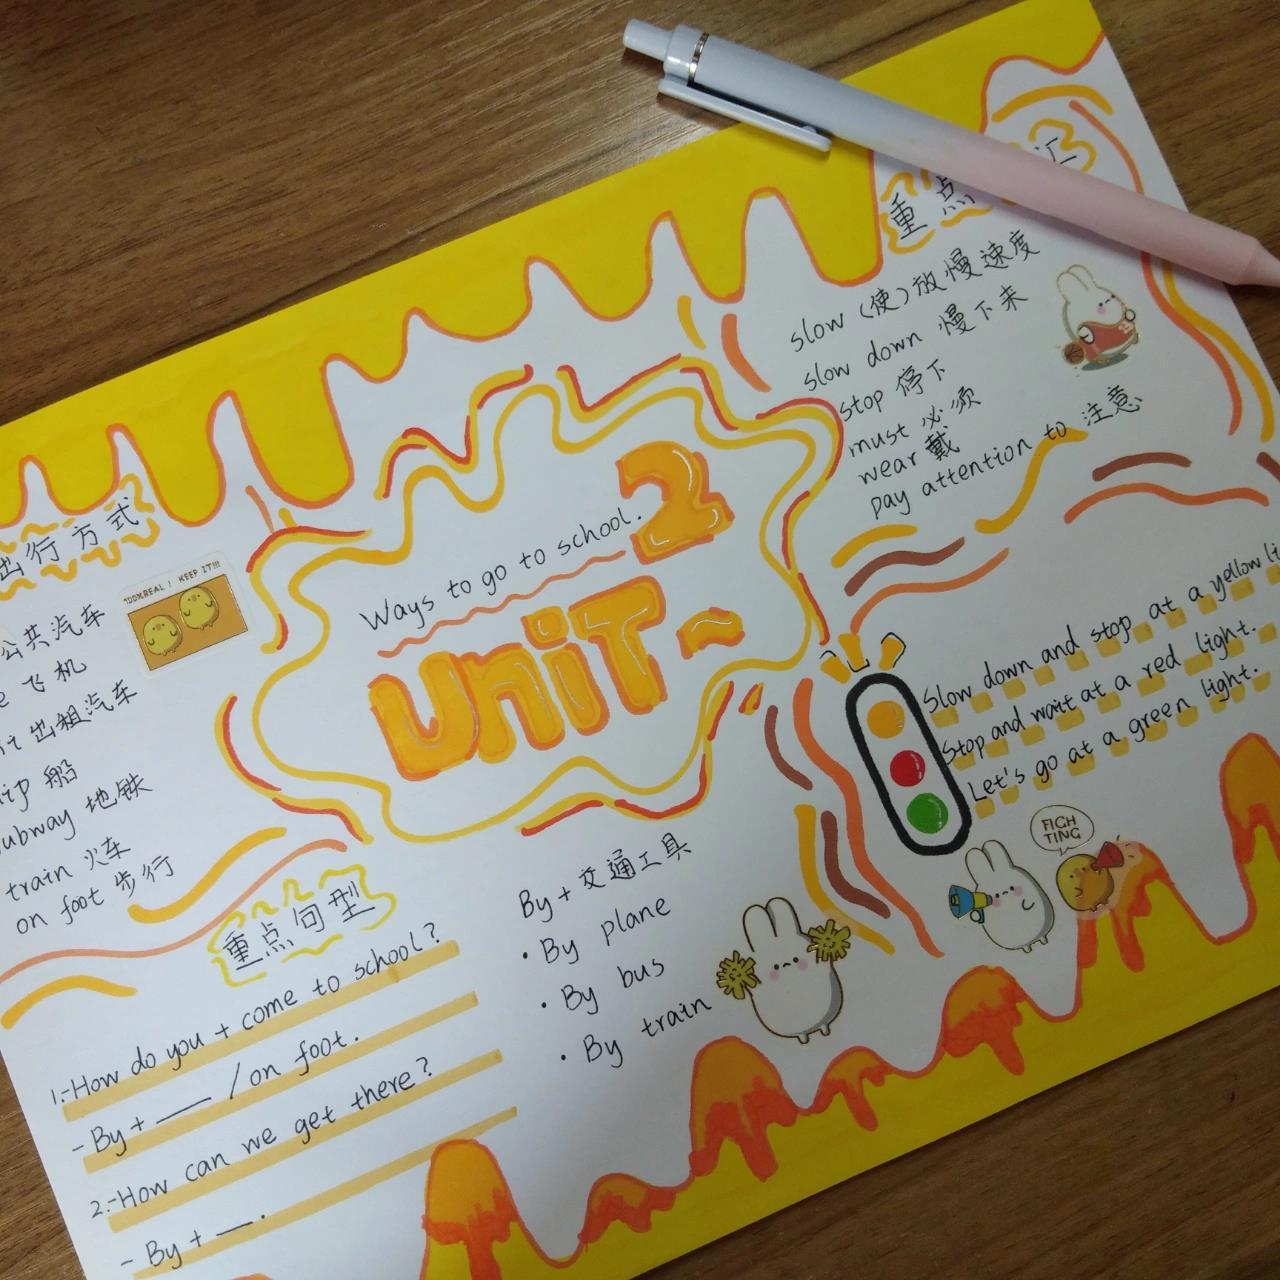 Ways to go to school.
UNIT 2
出行方式
公共汽车
飞机
出租汽车
船
subway 地铁
train 火车
on foot 步行
100%REAL! KEEP IT!!!
重点
slow (使)放慢速度
slow down 慢下来
stop 停下
must 必须
wear 戴
pay attention to 注意
Slow down and stop at a yellow
Stop and wait at a red light.
Let's go at a green light.
FIGHTING
重点句型
1.-How do you + come to school?
- By + ___ / on foot.
2.-How can we get there?
- By + ___.
By + 交通工具
· By plane
· By bus
· By train